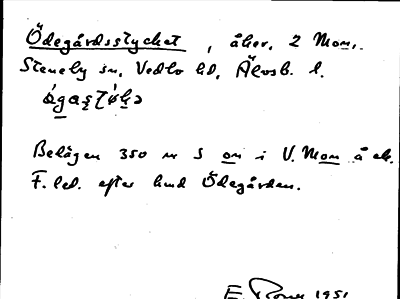 Ödegårdsstycket, åker, 2 Mon,.
Steneby sn, Vedbo hd, Älvsb. l.
Belägen 350 m S om i V. Mon å ek.
F. led. efter hmd Ödegården.
E. 1951